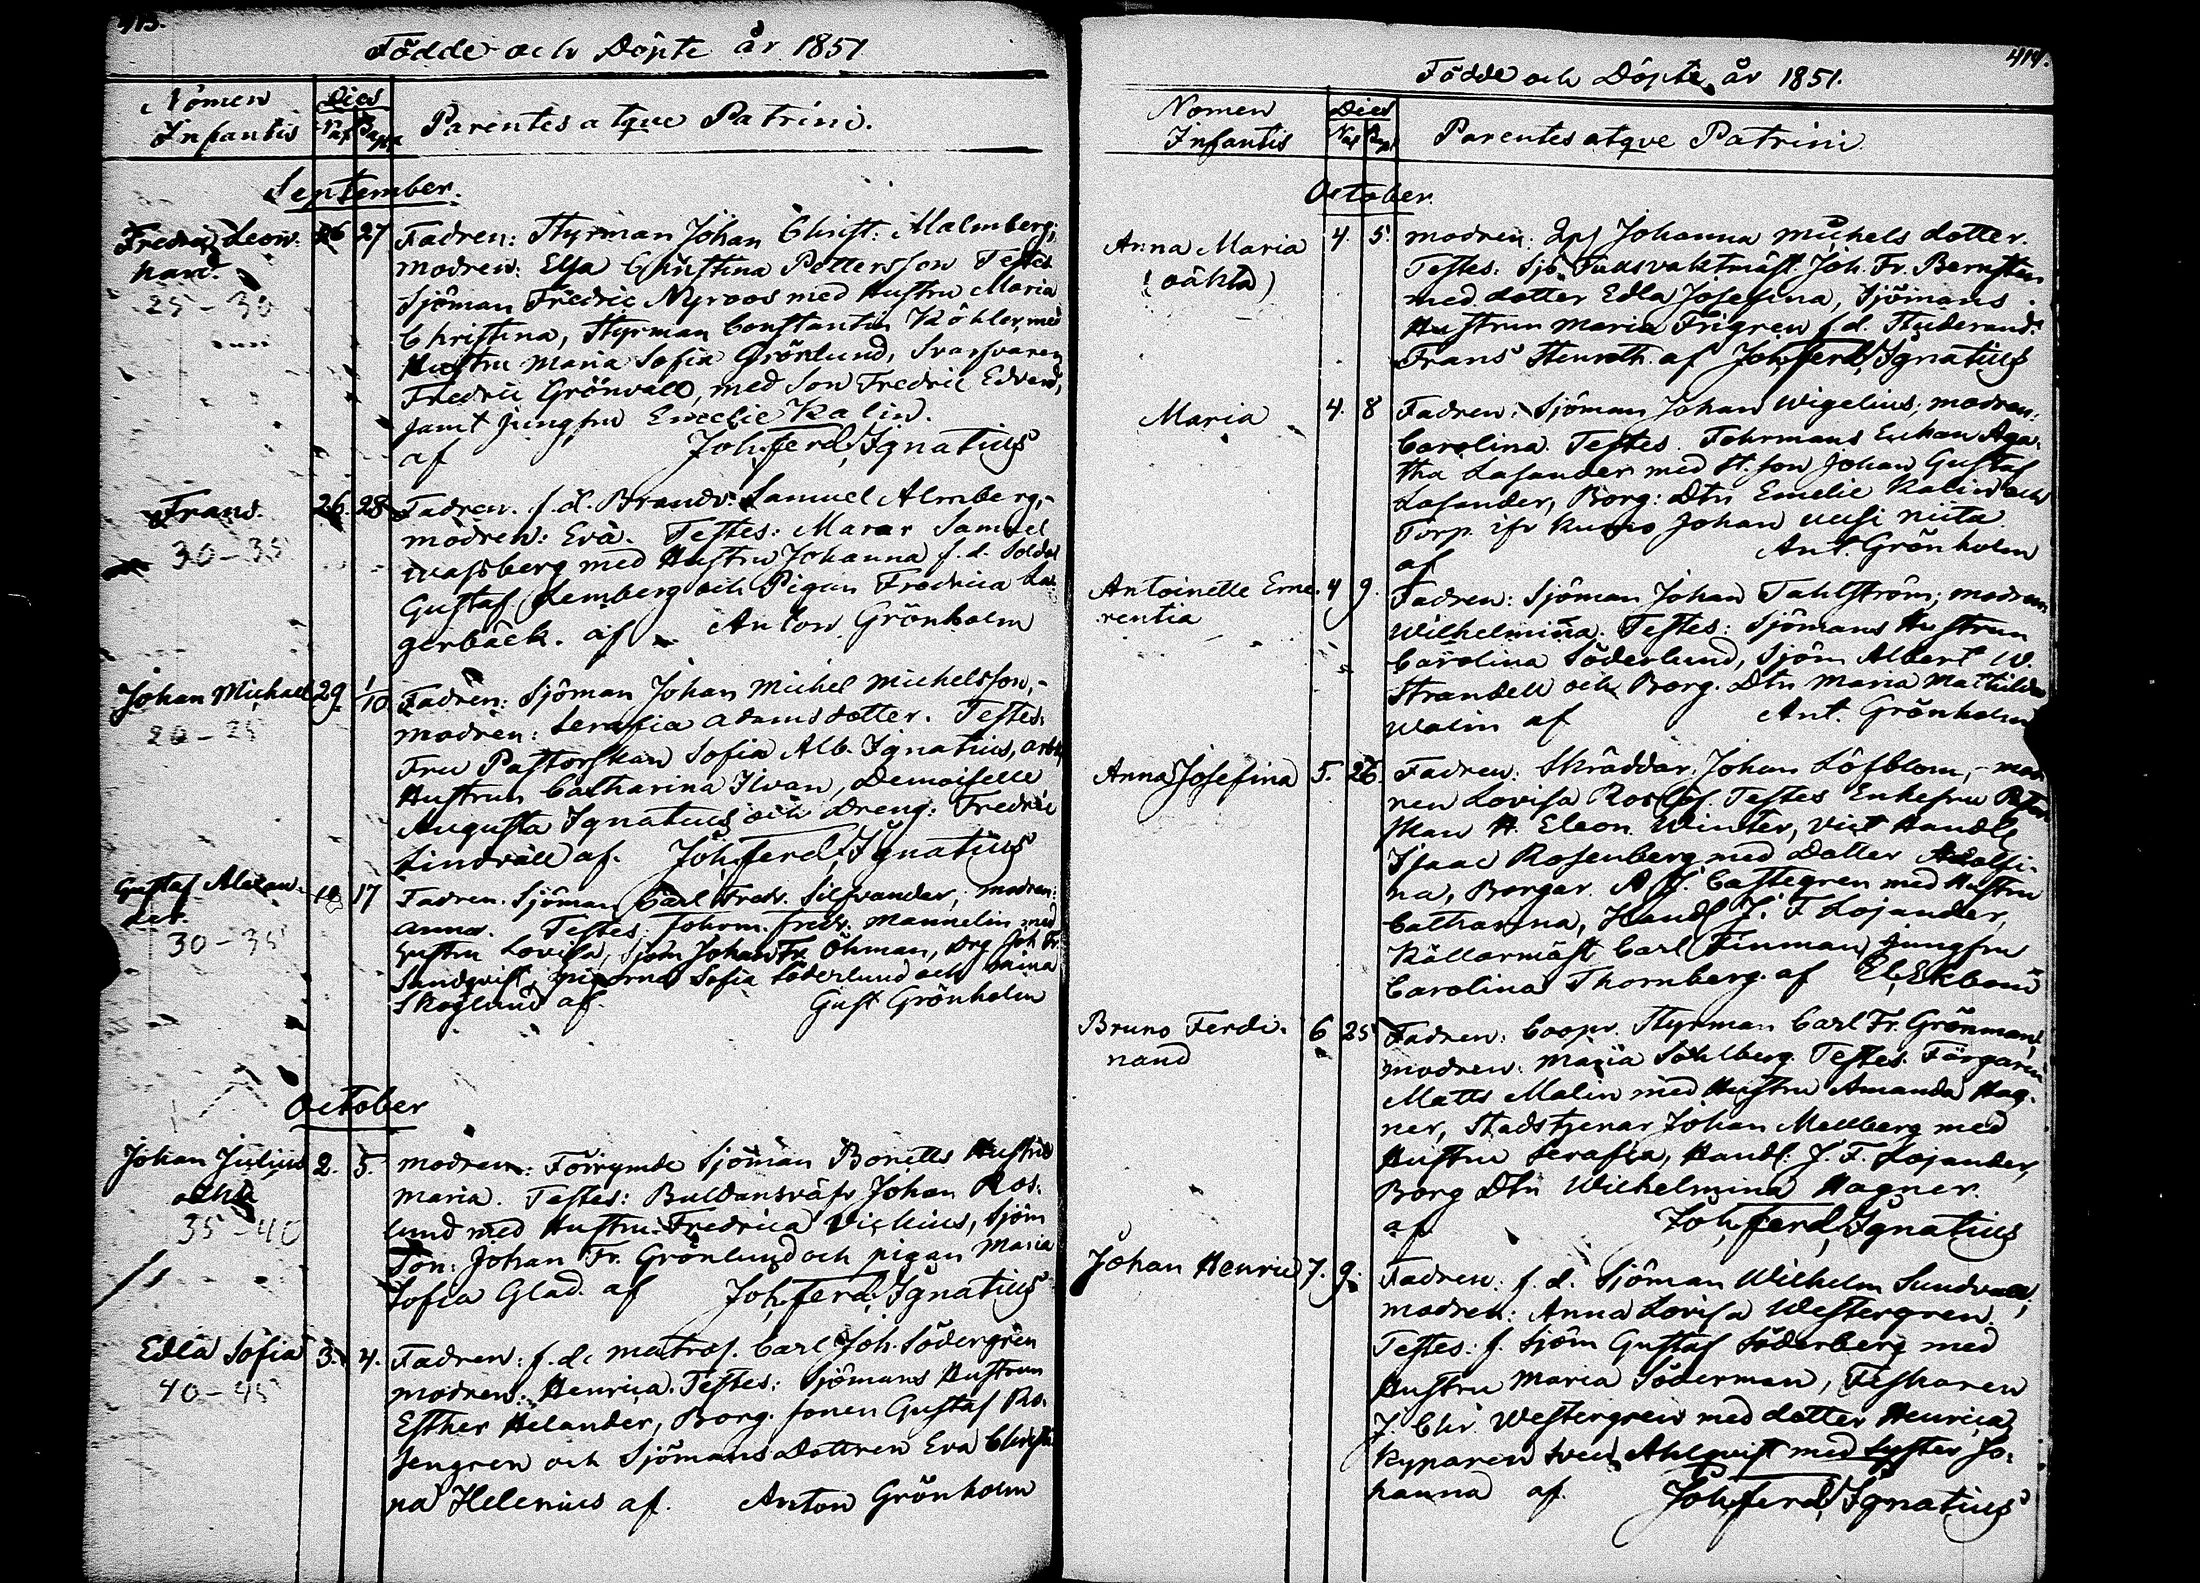 413.
Födde och Döpte år 1851
Nomen Infantis
Dies
Nat Bapt
Parentes atque Patrini.
September.
Fredric Leon-
hard.
25-30
26 27
Fadren: Styrman Johan Christ: Malmberg;
modren: Elsa Christina Pettersson Testes
Sjöman Fredric Nyroos med Hustru Maria
Christina, Styrman Constantin Köhler, med
Hustru Maria Sofia Grönlund, Svarfvaren
Fredric Grönvall, med Son Fredric Edvard,
samt jungfru Emelie Kalin.
af Joh. Ferd. Ignatius
Frans.
30-35
26. 28
Fadren. f.d. Brandv. Samuel Almberg,-
modren: Eva. Testes: Marar Samuel
Wassberg med Hustru Johanna f.d. Soldat
Gustaf Lemberg och Pigan Fredrica La-
gerbäck. af Anton Grönholm
Johan Michael
20-25
29 1/10
Fadren: Sjöman Johan Michel Michelsson,-
modren: Serafia Adamsdotter. Testes:
Fru Pastorskan Sofia Alb. Ignatius, arb
Hustrun Catharina Ilvan, Demoiselle
Augusta Ignatius och Dreng: Fredric
Lindvall af. Joh. Ferd. Ignatius
Gustaf Alexan-
der.
30-35
17
Fadren. Sjöman Carl Fredr. Silfvander; modren:
Anna. Testes: Fohrm. Fredr. Mannelin med
Hustru Lovisa, Sjöm Johan Fr. Öhman, Drg Joh Fr.
Sandqvist, pigorna Sofia Söderlund och
Skoglund af. Gust Grönholm
October
Johan Julius
oäkta
35-40
2. 5.
modren: Förrymde Sjöman Boretts Hustru
Maria. Testes: Johan Ros-
lund med Hustru Fredrica Vickius, Sjöm
Son: Johan Fr. Grönlund och pigan Maria
Sofia Glad. af Joh. Ferd. Ignatius
Edla Sofia
40-45
3. 4.
Fadren: f.d. matros. Carl Joh. Södergrén
modren: Henrica. Testes: Sjömans Hustrun
Esther Helander, Borg. sonen Gustaf Ro-
sengren och Sjömans Dottren Eva Christi
na Helenius af. Anton Grönholm
414.
Födde och Döpte år 1851.
Nomen Infantis
Dies
Nat Bapt
Parentes atqve Patrini
October.
Anna Maria
(oäkta)
4. 5.
modren: Johanna Michels dotter.
Testes: Sjö Tullsvaktmäst. Joh. Fr. Bernsten
med dotter Edla Josefina, Sjömans
Hustrun Maria Frigren f.d. Studerand.
Frans Stenroth. af Joh. Ferd. Ignatius
Maria
4. 8
Fadren: Sjöman Johan Wigelius; modren:
Carolina. Testes. Fohrmans Enkan Aga-
tha Lasander med st. son Johan Gustaf
Lasander, Borg: Dtr Emelie Kalin och
Torp. ifr Kumo Johan uusi niita
af Ant. Grönholm
Antoinette Eme-
rentia
4 9.
Fadren: Sjöman Johan Tahlström; modren
Wilhelmina. Testes: Sjömans Hustrun
Carolina Söderlund, Sjöm Albert W.
Strandell och Borg. Dtr Maria Mathilda
Walin af Ant. Grönholm
Anna Josefina
5. 26.
Fadren: Skräddar. Johan Löfblom,- mod-
ren Lovisa Testes Enkefru
H. Eleon. Winter, Vict Handl
Isaac Rosenberg med Dotter Adolfi-
na, Borgar. Castegren med Hustru
Catharina, Handl J. F. Lojander,
Källarmäst Carl Finman Jungfru
Carolina Thornberg. af El. Ekbom
Bruno Ferdi-
nand
6 25
Fadren: Coopv. Styrman Carl Fr. Grönman,
modren: Maria Sahlberg. Testes Färgaren
Matts Malin med Hustru Amanda Hag-
ner, Stadstjenar Johan Mellberg med
Hustru Serafia, Handl. J. F. Lojander,
Borg Dtr Wilhelmina Hagner.
af Joh. Ferd. Ignatius
Johan Henric
7. 9.
Fadren: f.d. Sjöman Wilhelm Sundvall;
modren: Anna Lovisa Westergren.
Testes: f. Sjöm Gustaf Söderberg med
Hustru Maria Söderman, Fiskaren
J. Chr. Westergren med dotter Henrica
kyparen Sven Ahlqvist med syster Jo-
hanna af. Joh. Ferd. Ignatius